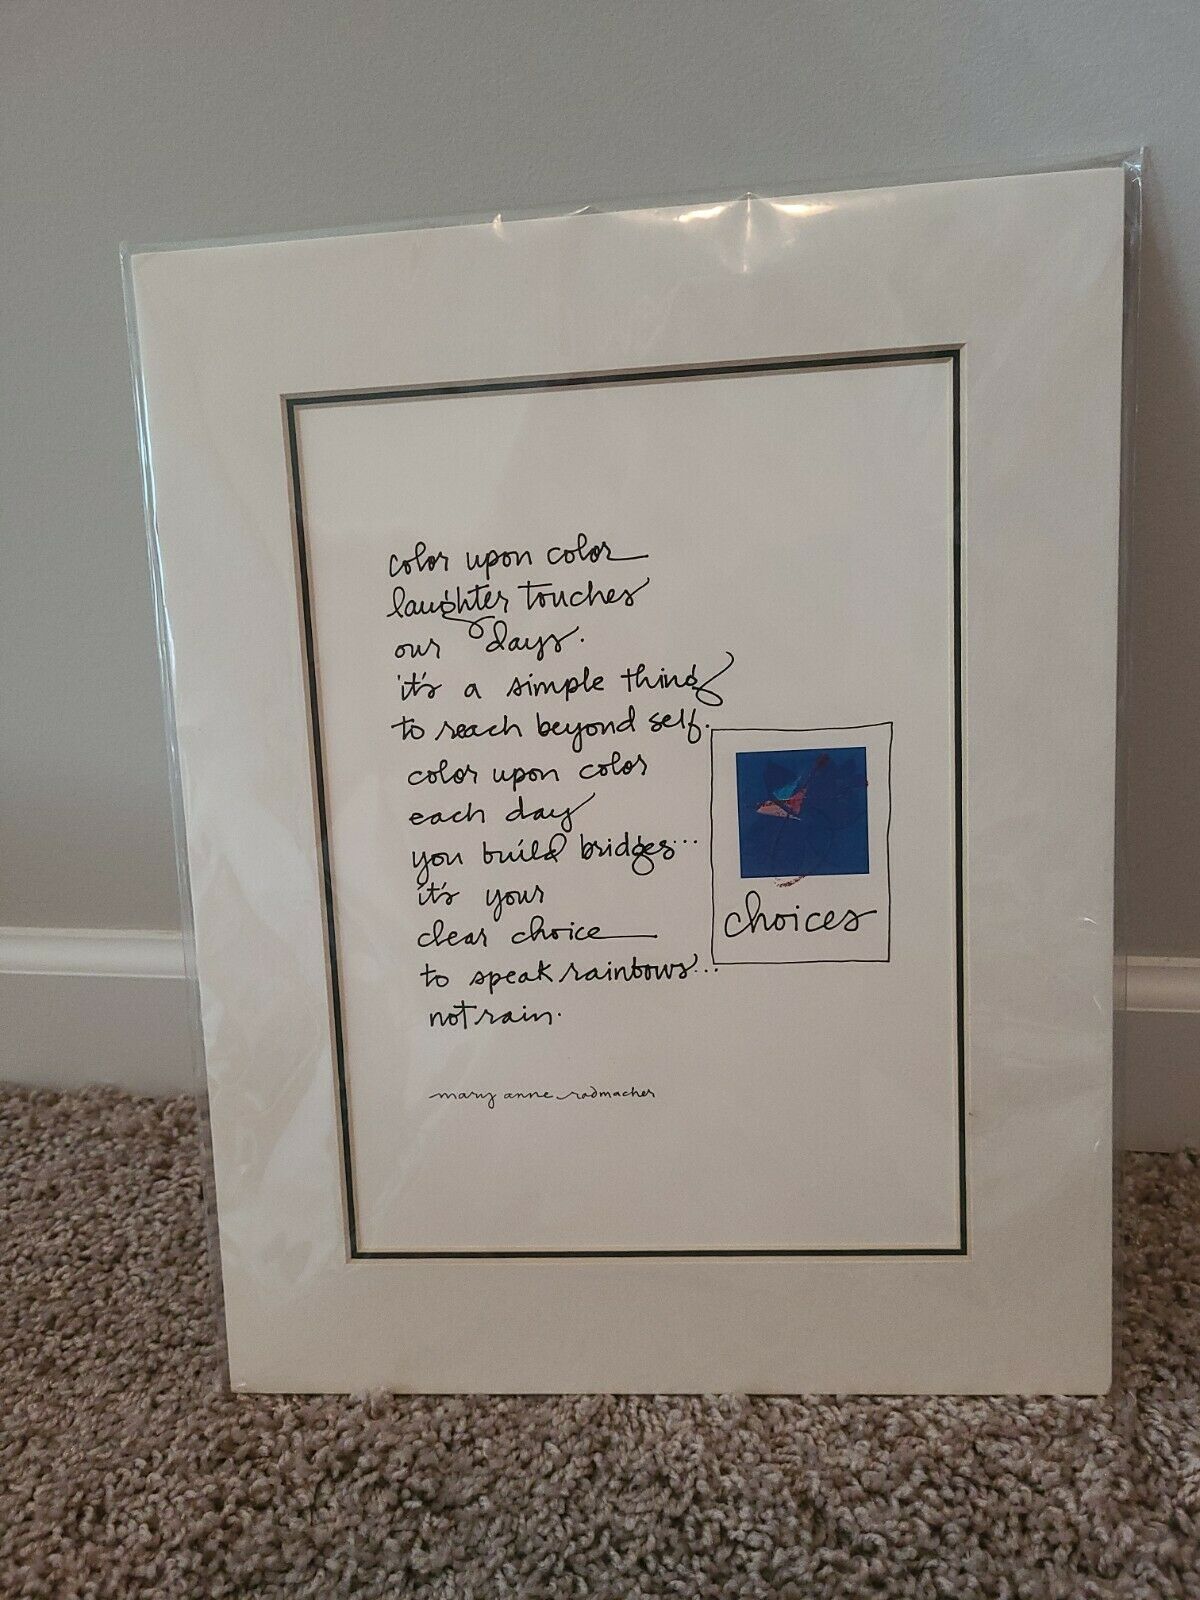 color upon color
laughter touches
our days.
it's a simple thing
to reach beyond self.
color upon color
each day
you build bridges...
it's your
clear choice
to speak rainbows...
not rain.
choices
mary anne radmacher